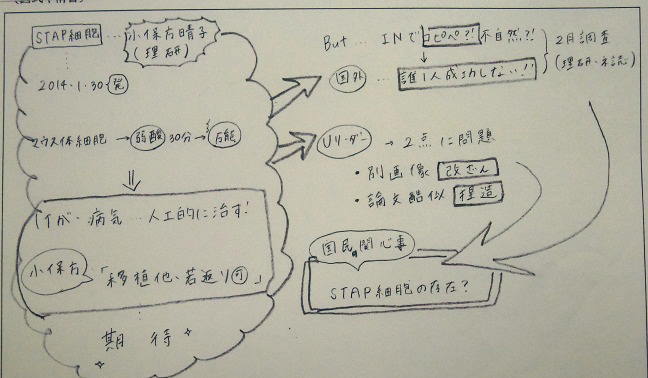 STAP細胞 … 小保方晴子
(理研)
2014.1.30 発
マウス体細胞 → 弱酸 30分 → 万能
ケガ・病気 … 人工的に治す!
小保方 「移植他、若返り可」
期待
But … INで コピペ?! 不自然?!
国外 … 誰1人成功しない!!
2月調査
(理研・ネイ誌)
Uリーダー → 2点に問題
・別画像 改ざん
・論文酷似 捏造
国民の関心事
STAP細胞の存在?